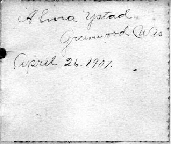 Alma Ystad.
Greenwood, Wis
April 26. 1901.